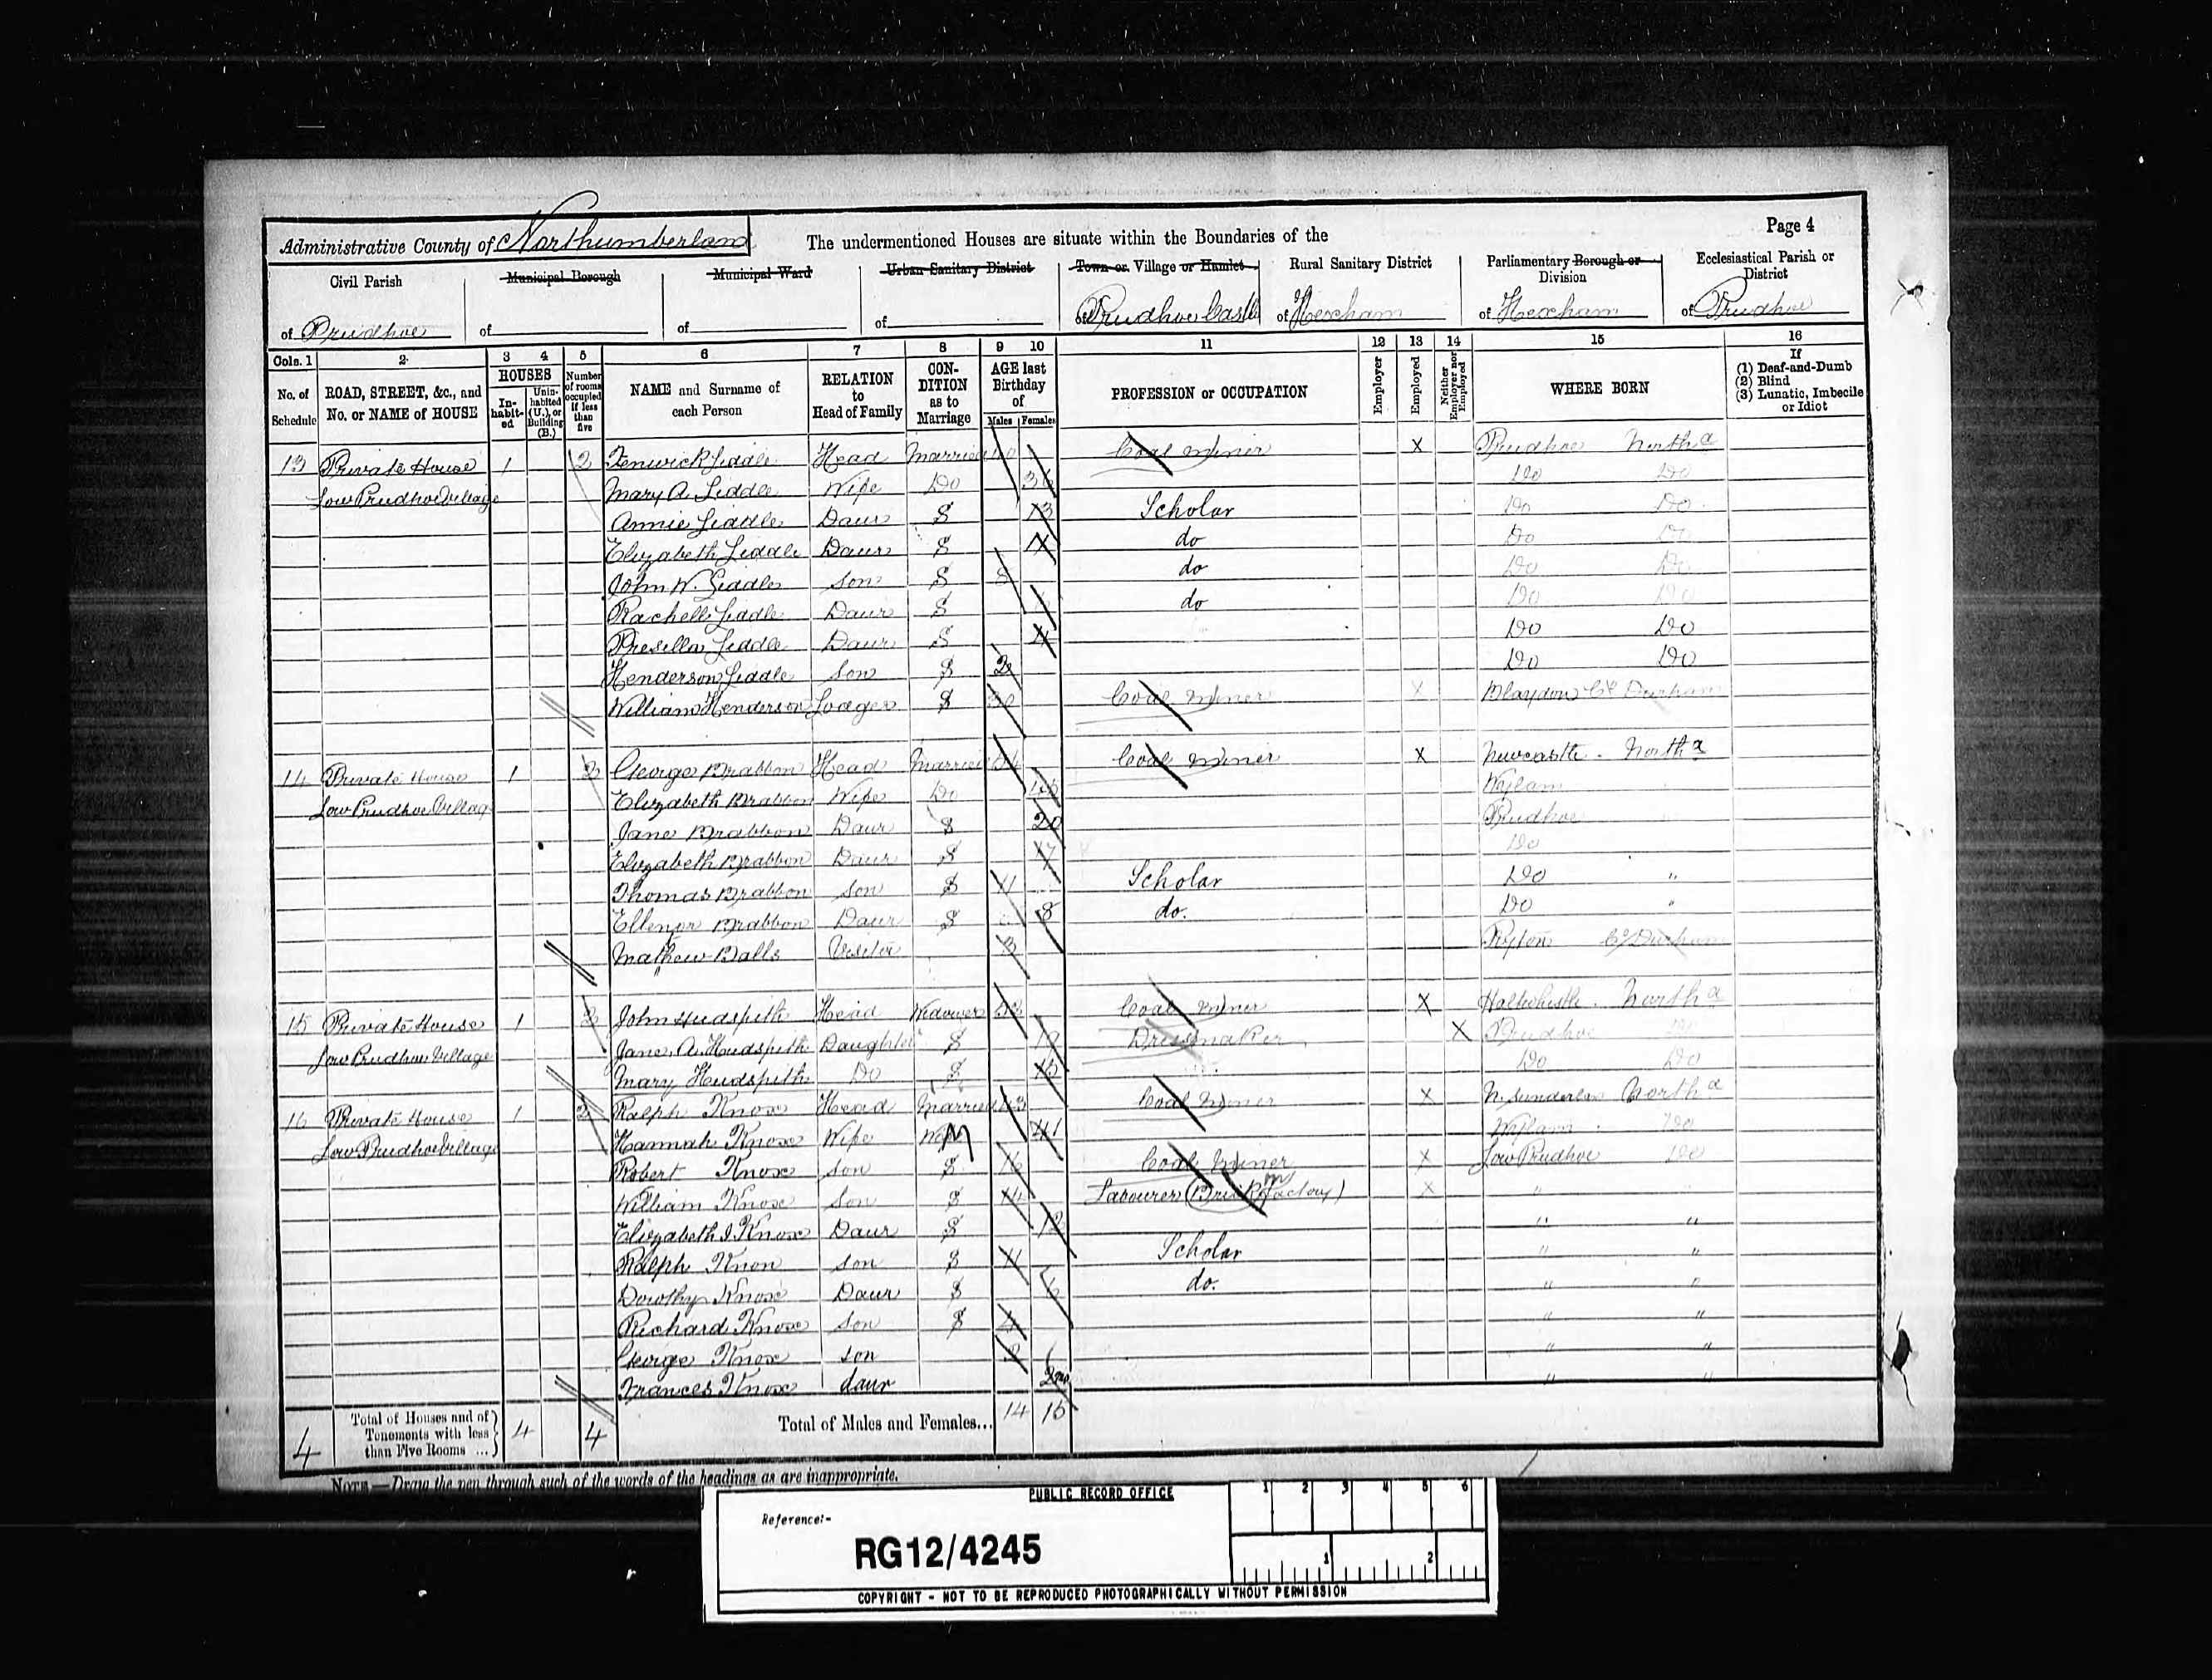 Page 4
Administrative County of Northumberland The undermentioned Houses are situate within the Boundaries of the
Civil Parish Municipal Borough Municipal Ward Urban Sanitary District Town or Village or Hamlet Rural Sanitary District Parliamentary Borough or Division Ecclesiastical Parish or District
of Prudhoe of of of of Prudhoe Castle of Hexham of Hexham of Prudhoe
Cols. 1 2 3 4 5 6 7 8 9 10 11 12 13 14 15 16
No. of Schedule ROAD, STREET, &c., and No. or NAME of HOUSE HOUSES In-habit-ed Unin-habited (U.), or Building (B.) Number of rooms occupied if less than five NAME and Surname of each Person RELATION to Head of Family CON-DITION as to Marriage AGE last Birthday of Males Females PROFESSION or OCCUPATION Employer Employed Neither Employer nor Employed WHERE BORN If (1) Deaf-and-Dumb (2) Blind (3) Lunatic, Imbecile or Idiot
13 Private House 1 2 Fenwick Liddle Head Married Coal Miner X Prudhoe North d
Low Prudhoe Village Mary A. Liddle Wife Do Do Do
Annie Liddle Daur S 13 Scholar Do Do
Elizabeth Liddle Daur S do Do Do
John W. Liddle Son S 8 do Do Do
Rachell Liddle Daur S do Do Do
Liddle Daur S 4 Do Do
Henderson Liddle Son S 2 Do Do
William Henderson Lodger S 30 Coal Miner X Blaydon Co Durham
14 Private House 1 George Brabbon Head Married Coal Miner X Newcastle North d
Low Prudhoe Village Elizabeth Brabbon Wife Do Wylam
Jane Brabbon Daur S 20 Prudhoe
Elizabeth Brabbon Daur S 17 Do
Thomas Brabbon Son S 11 Scholar Do "
Ellenor Brabbon Daur S 8 do. Do "
Mathew Balls Visitor Ryton Co Durham
15 Private House 1 John Hudspith Head Widower Coal Miner X Haltwhistle North d
Low Prudhoe Village Jane A. Hudspith Daughter S Dressmaker X Prudhoe Do
Mary Hudspith Do S Do Do
16 Private House 1 2 Ralph Knox Head Married 43 Coal Miner X N. Sunderlan North d
Low Prudhoe Village Hannah Knox Wife M 41 Wylam Do
Robert Knox Son S 16 Coal Miner X Low Prudhoe Do
William Knox Son S 14 Labourer (Brick Factory) M X " "
Elizabeth J Knox Daur S 12 " "
Ralph Knox Son S 11 Scholar " "
Dorothy Knox Daur S 6 do. " "
Richard Knox Son S 4 " "
George Knox Son 2 " "
Frances Knox daur 2 mo " "
4 Total of Houses and of Tenements with less than Five Rooms ... 4 4 Total of Males and Females... 14 15
NOTE.—Draw the pen through such of the words of the headings as are inappropriate.
PUBLIC RECORD OFFICE
1 2 3 4 5 6
Reference:-
RG12/4245
1 2
COPYRIGHT - NOT TO BE REPRODUCED PHOTOGRAPHICALLY WITHOUT PERMISSION